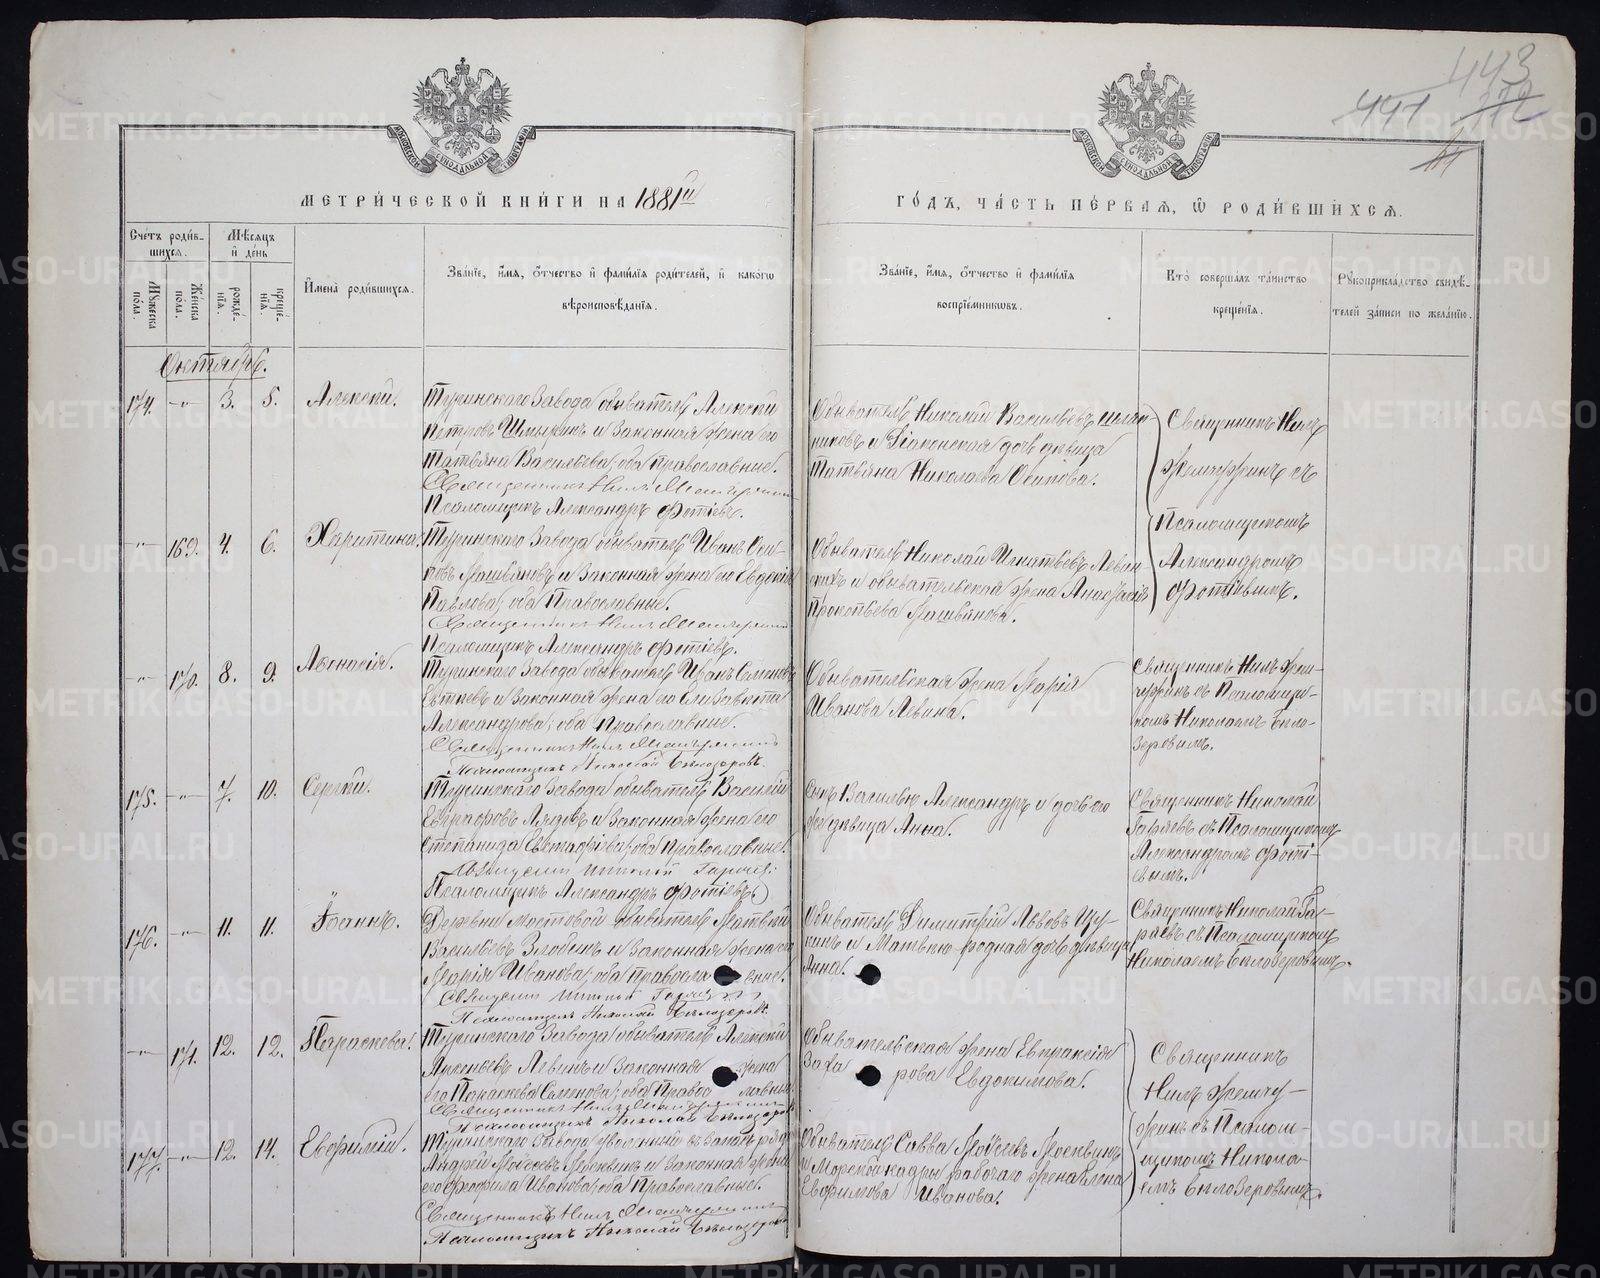 443
441 372
МЕТРИЧЕСКОЙ КНИГИ НА 1881й
ГОДЪ, ЧАСТЬ ПЕРВАЯ, Ѡ РОДИВШИХСЯ.
Счетъ родив-
шихся.
Мѣсяцъ
и день
Мужеска
пола.
Женска
пола.
рожде-
нія.
креще-
нія.
Имена родившихся.
Званіе, имя, отчество и фамилія родителей, и какого
вѣроисповѣданія.
Званіе, имя, отчество и фамилія
воспріемниковъ.
Кто совершалъ таинство
крещенія.
Рукоприкладство свидѣ-
телей записи по желанію.
Октябрь.
174. -"- 3. 5. Алексій.
Туринскаго Завода обыватель Алексій
Петровъ Шмыкинъ и законная жена его
Татьяна Васильева, оба православные.
Священникъ Нилъ
Псаломщикъ Александръ Фотіевъ.
Обыватель Николай Васильевъ
никовъ и Діаконская дочь дѣвица
Татьяна Николаева Осипова.
Священникъ Нилъ
Жемчужинъ съ
Псаломщикомъ
Александромъ
Фотіевымъ.
-"- 169. 4. 6. Харитина.
Туринскаго Завода обыватель Иванъ Оси-
повъ и законная жена его Евдокія
Павлова, оба Православные.
Священникъ Нилъ
Псаломщикъ Александръ Фотіевъ.
Обыватель Николай Игнатьевъ
и обывательская жена Анастасія
Прокопьева
-"- 170. 8. 9. Афанасія.
Туринскаго Завода обыватель Иванъ Семеновъ
и законная жена его Елизавета
Александрова, оба Православные.
Священникъ Нилъ
Псаломщикъ Николай Бѣлозеровъ.
Обывательская жена Марія
Иванова Левина.
Священникъ Нилъ Жем-
чужинъ съ Псаломщи-
комъ Николаемъ Бѣло-
зеровымъ.
175. -"- 7. 10. Сергій.
Туринскаго Завода обыватель Василій
и законная жена его
Степанида Евстафіева, оба Православные.
Священникъ Николай Гаряевъ.
Псаломщикъ Александръ Фотіевъ.
Сынъ Василью Александръ и дочь его
же дѣвица Анна.
Священникъ Николай
Гаряевъ съ Псаломщикомъ
Александромъ Фоті-
евымъ.
176. -"- 11. 11. Іоаннъ.
Деревни Мостовой обыватель Матвей
Васильевъ Злобинъ и законная жена его
Марія Иванова, оба правосла вные.
Священникъ Николай Гаряевъ
Псаломщикъ Николай Бѣлозеровъ.
Обыватель Димитрій Львовъ Цу-
кинъ и Матвею родная дочь дѣвица
Анна.
Священникъ Николай Га-
ряевъ съ Псаломщикомъ
Николаемъ Бѣлозеровымъ.
-"- 171. 12. 12. Параскева.
Туринскаго Завода обыватель Алексій
Арсеньевъ Левинъ и законная жена
его Параскева Семенова, оба Правос лавные.
Священникъ Нилъ
Псаломщикъ Николай Бѣлозеровъ.
Обывательская жена Евпраксія
Заха рова Евдокимова.
Священникъ
Нилъ Жемчу-
жинъ съ Псалом-
щикомъ Никола-
емъ Бѣлозеровымъ.
177. -"- 12. 14. Евфимій.
Туринскаго Завода уволенный
Андрей Мойсеевъ Москвинъ и законная жена
его Феофила Иванова, оба Православные.
Священникъ Нилъ
Псаломщикъ Николай Бѣлозеровъ
Обыватель Савва Мойсеевъ Москвинъ
и Морской кадры рабочаго жена Елена
Евфимова Иванова.